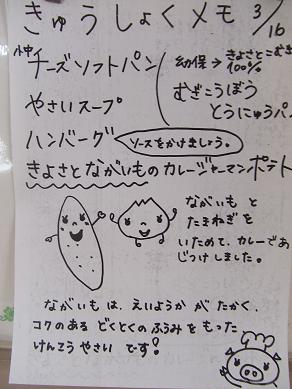 きゅうしょくメモ 3/16
小中↗
チーズソフトパン
幼保→きよさとこむぎ100%
むぎこうぼう
とうにゅうパン
やさいスープ
ハンバーグ ソースをかけましょう。
きよさとながいものカレージャーマンポテト
ながいもと
たまねぎを
いためて、カレーであ
じつけしました。
ながいもは、えいようかがたかく、
コクのあるどくとくのふうみをもった
けんこうやさいです!